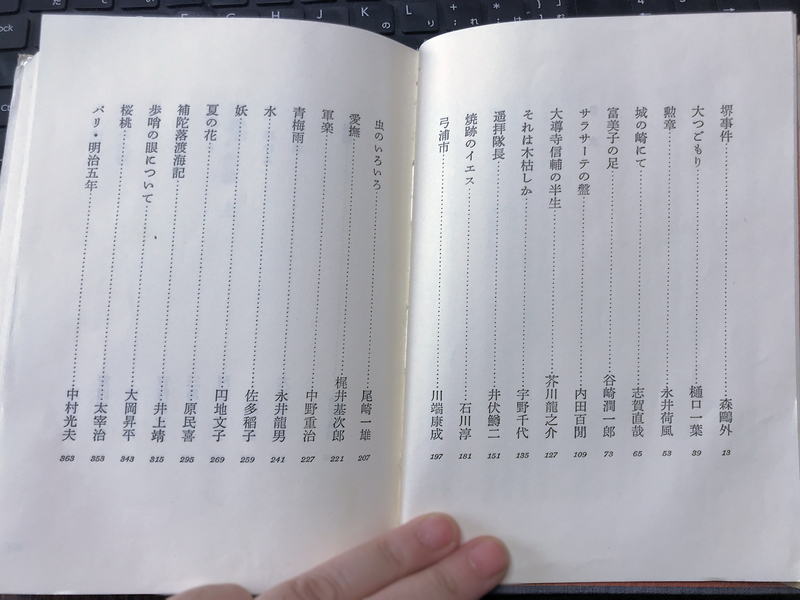 堺事件 森鷗外 13
大つごもり 樋口一葉 39
勲章 永井荷風 53
城の崎にて 志賀直哉 65
富美子の足 谷崎潤一郎 73
サラサーテの盤 内田百閒 109
大導寺信輔の半生 芥川龍之介 127
それは木枯しか 宇野千代 135
遥拝隊長 井伏鱒二 151
焼跡のイエス 石川淳 181
弓浦市 川端康成 197
虫のいろいろ 尾崎一雄 207
愛撫 梶井基次郎 221
軍楽 中野重治 227
青梅雨 永井龍男 241
水 佐多稲子 259
妖 円地文子 269
夏の花 原民喜 295
補陀落渡海記 井上靖 315
歩哨の眼について 大岡昇平 343
桜桃 太宰治 353
パリ・明治五年 中村光夫 363